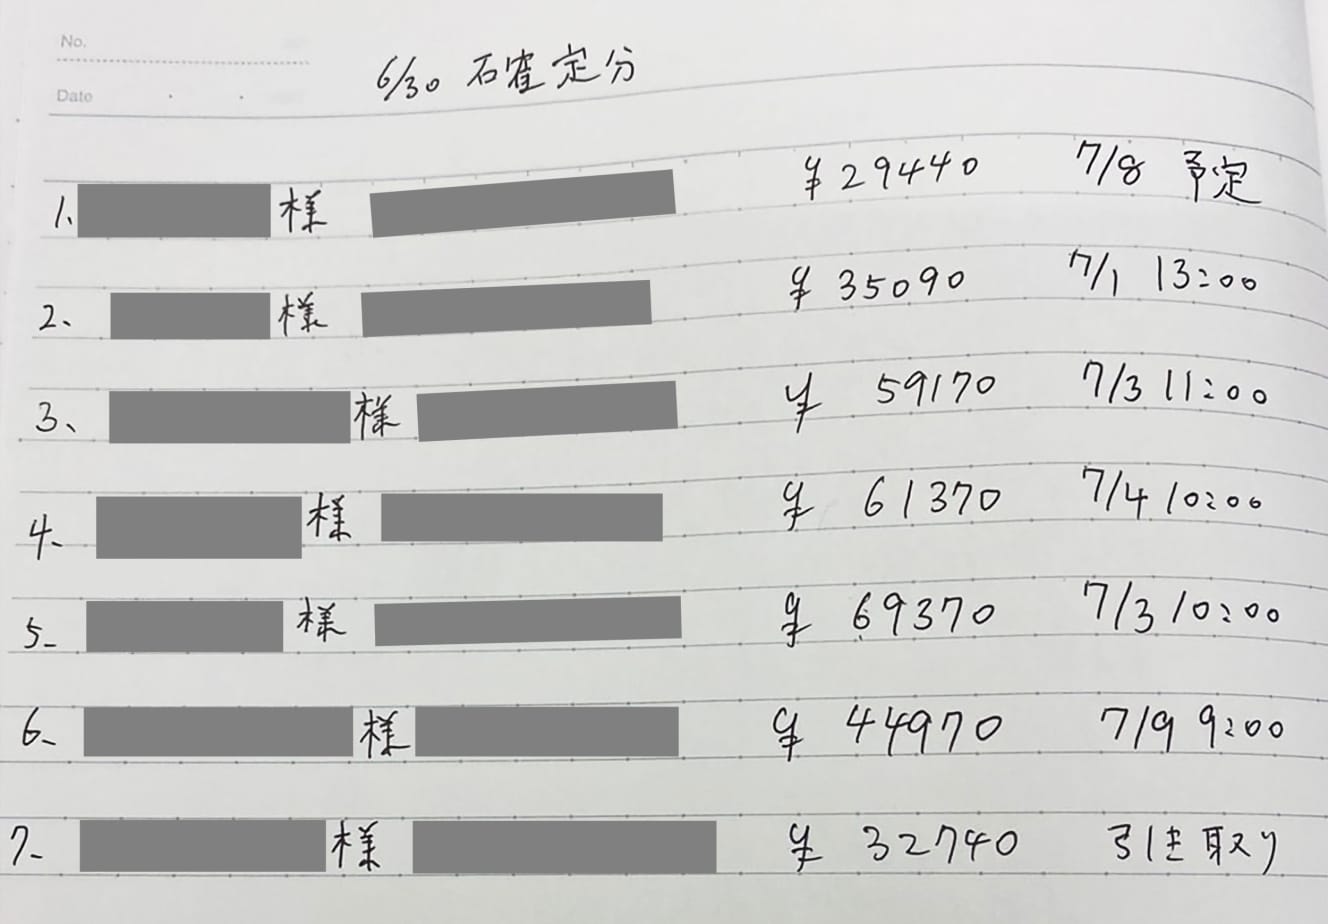 No.
6/30 確定分
Date
1. 様 ¥29440 7/8 予定
2. 様 ¥35090 7/1 13:00
3. 様 ¥59170 7/3 11:00
4. 様 ¥61370 7/4 10:00
5. 様 ¥69370 7/3 10:00
6. 様 ¥44970 7/9 9:00
7. 様 ¥32740 引き取り